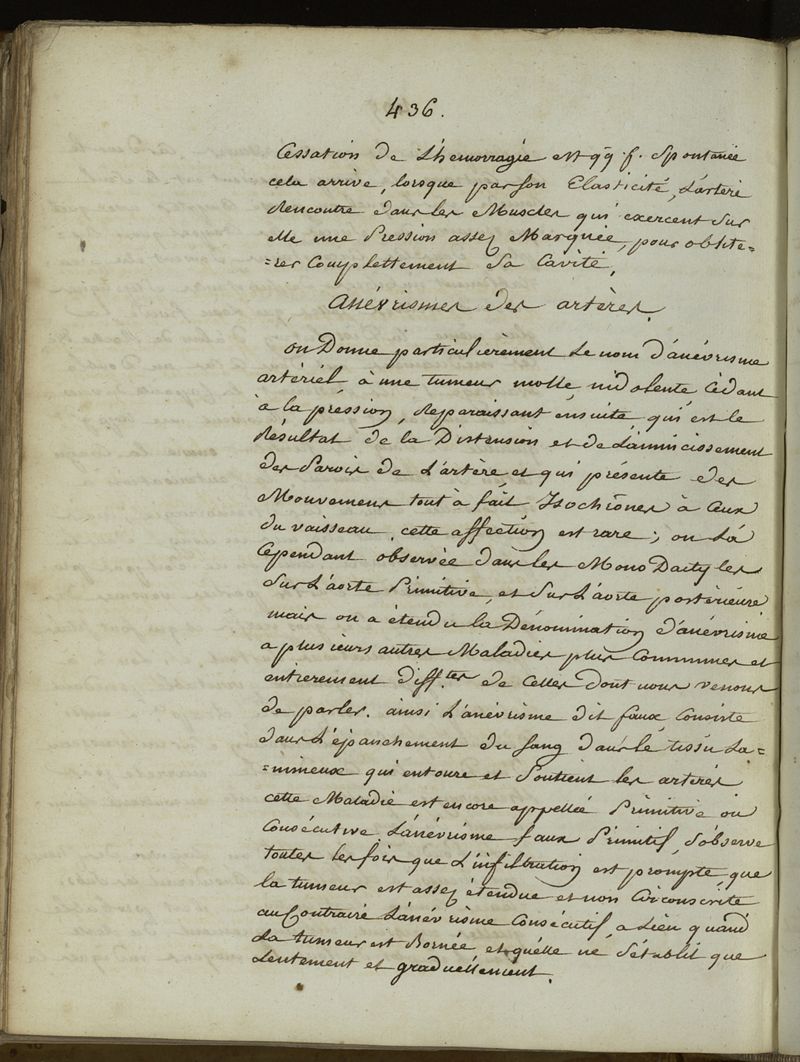 436.
Cessation de L'hemorragie est qq. f. Spontanée
cela arrive, lorsque par son Elasticité, L'artere
Rencontre dans les Muscles qui exercent Sur
elle une Pression assez Marquée, pour oblite=
=rer Complettement Sa Cavité,
Anévrismes des artères.
on Donne particulièrement Le nom d'anévrisme
artériel, à une tumeur molle indolente, Cèdant
à la pression, Reparaissant ensuite, qui est le
Résultat de la Distension et de L'amincissement
des Parois de L'artère, et qui présente des
Mouvemens tout à fait Isochrônes à Ceux
du vaisseau, cette affection est rare; on L'a
Cependant observée dans les Mono Dactyles
Sur L'aorte Primitive, et Sur L'aorte postérieure
mais on a étendu la Dénomination d'anévrisme
a plusieurs autres Maladies plus Communes et
entierement diff.tes de Celles Dont nous venons
de parler. ainsi L'anévrisme dit faux Consiste
dans L'épanchement du Sang dans le tissu La=
=mineux qui entoure et Soutient les artères
cette Maladie est encore appellée Primitive ou
Consécutive, L'anévrisme faux Primitif, S'observe
toutes les fois que L'infiltration est prompte, que
la tumeur est assez étendue et non Circonscrite
au Contraire L'anévrisme Consécutif a Lieu quand
La tumeur est Bornée, et qu'elle ne S'établit que
Lentement et graduellement.